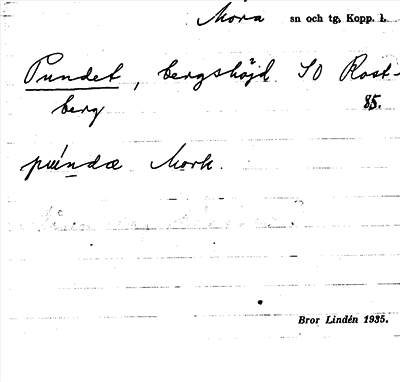 Mora sn och tg, Kopp. l.
Pundet, bergshöjd SO Rost-
berg 85.
Mork.
Bror Lindén 1935.